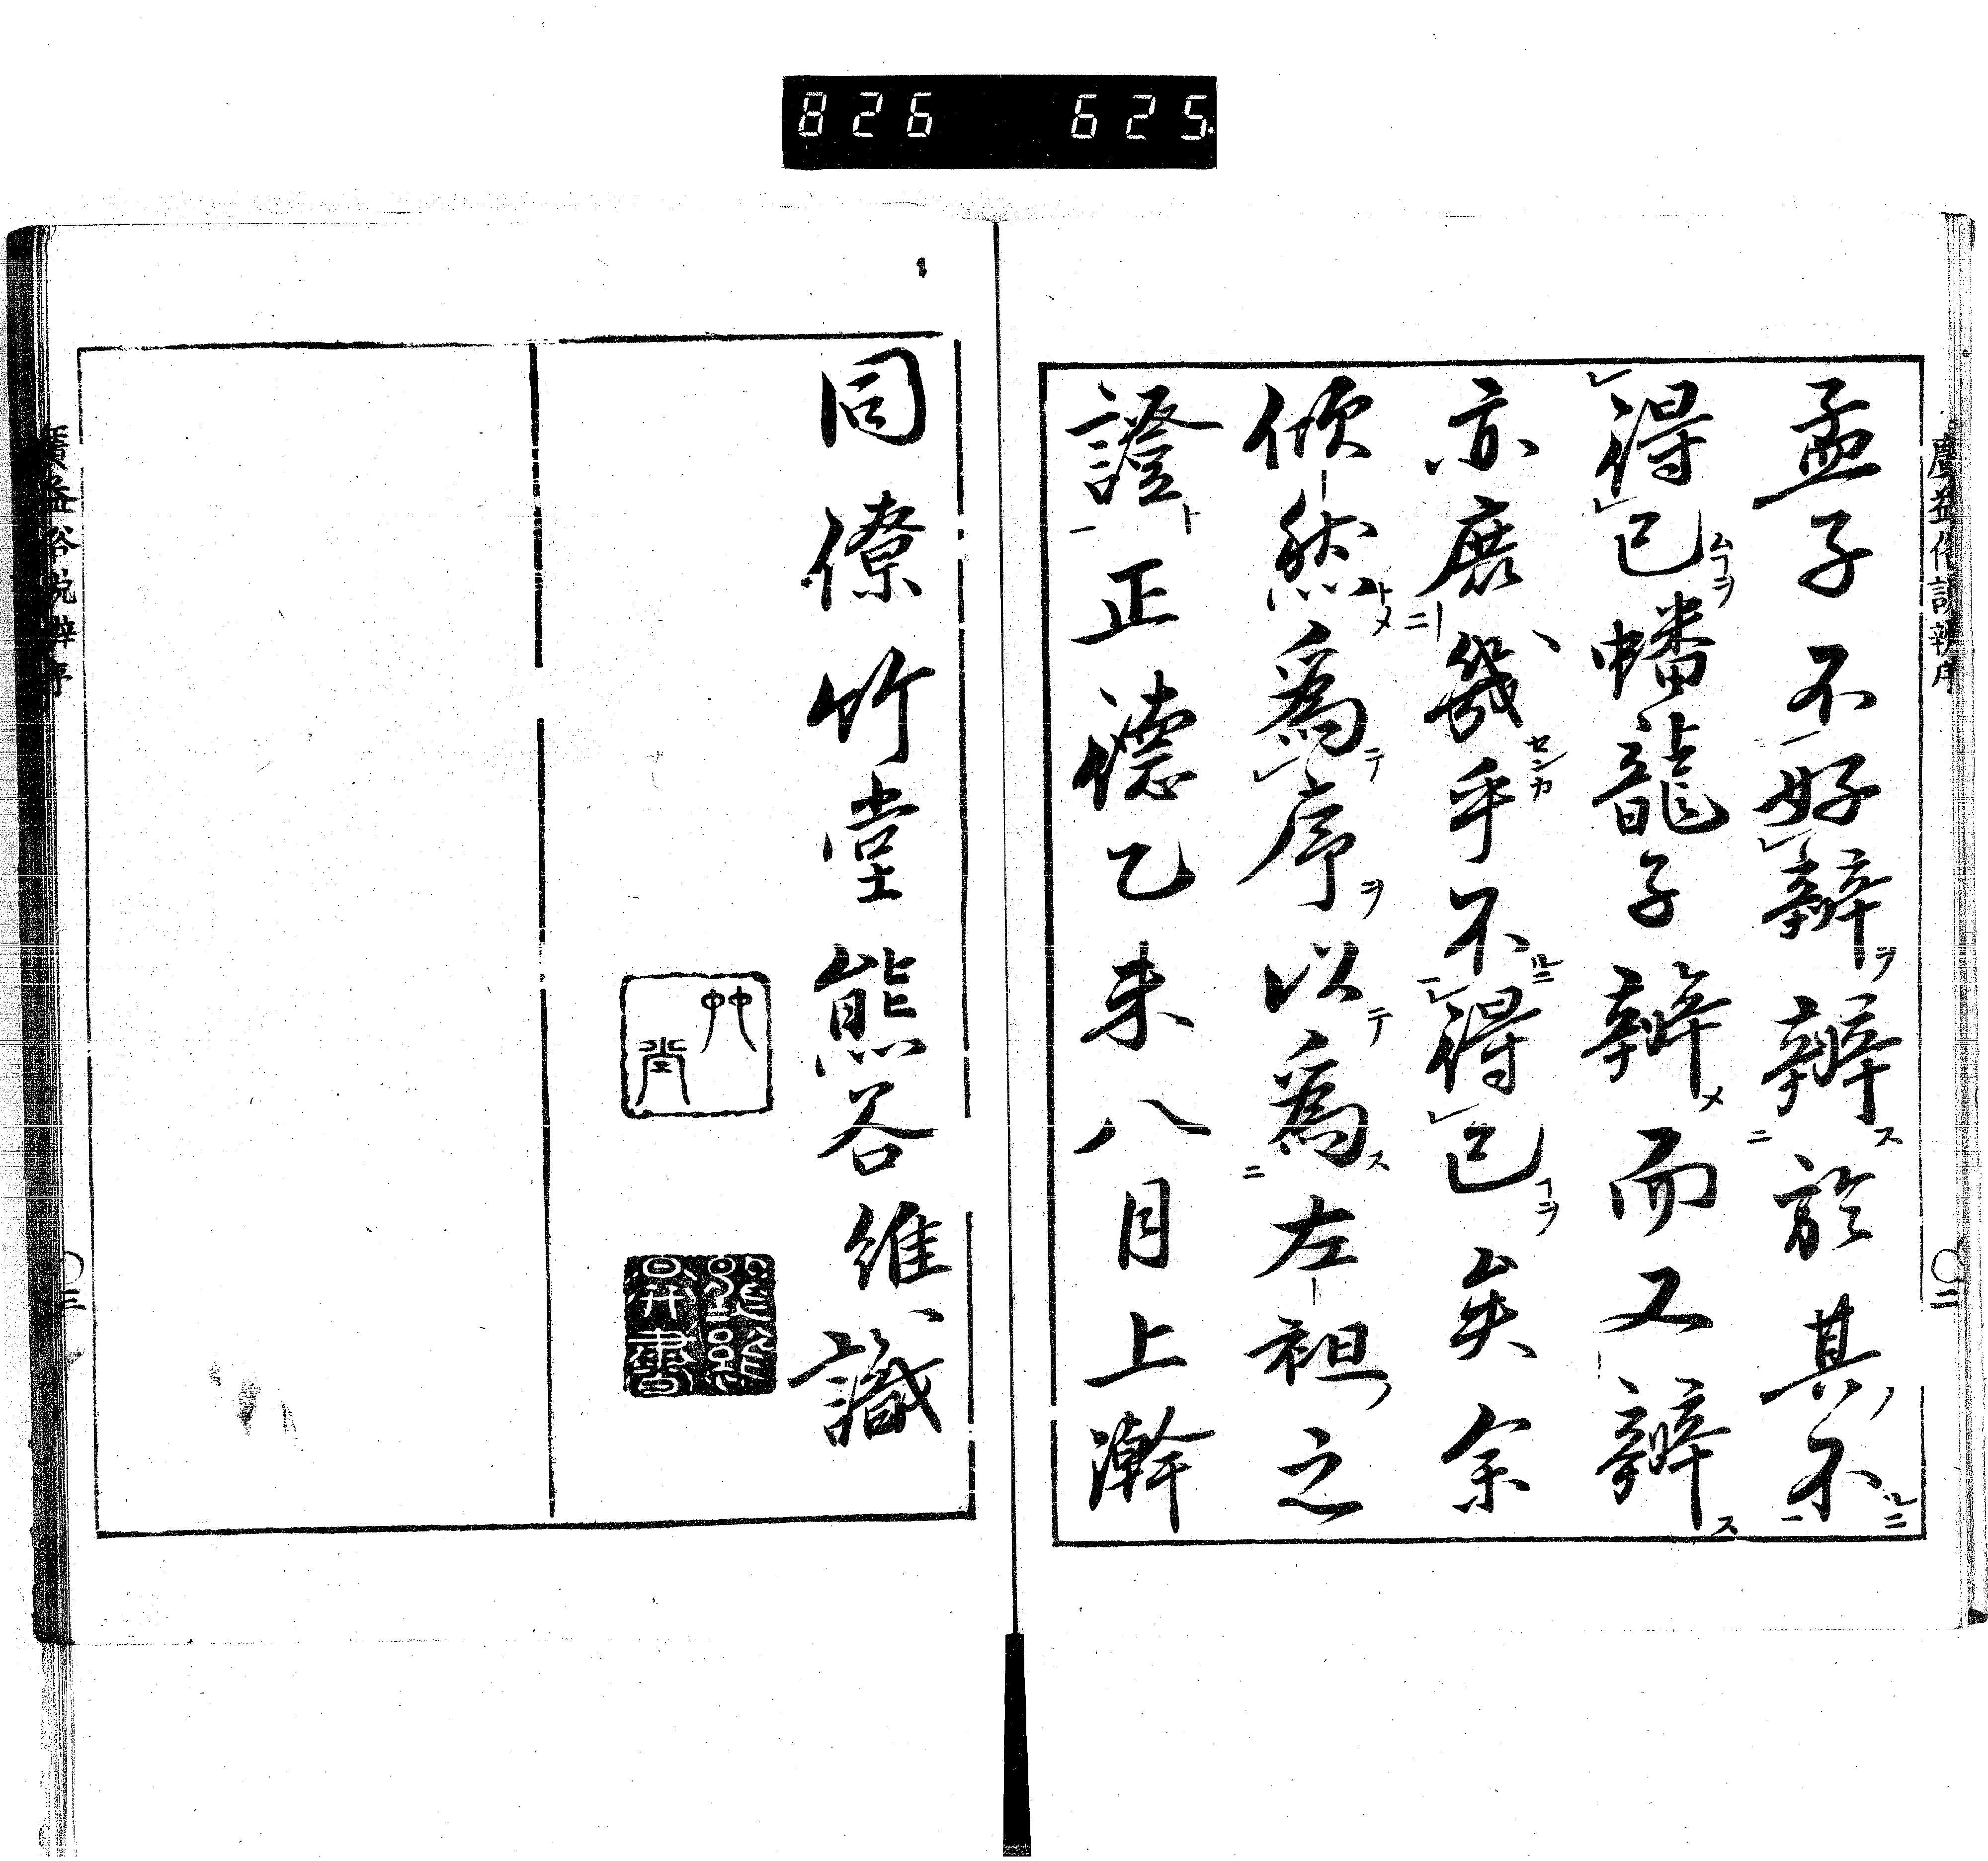 826 625
廣益俗說辨序
〇二
孟子不好辯辯於其不
得已幡龍子辯而又辯
亦庶幾乎不得已矣余
傾然爲序以爲左袒之
證正德乙未八月上澣
同僚竹堂熊谷維識
竹堂
廣益俗說辨序
〇三